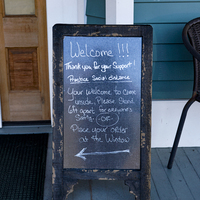 Welcome !!!
Thank you for your Support!
Practice Social distance
Your Welcome to come
inside. Please Stand
6ft apart for everyones
Safty -OR-
Place your order
at the Window